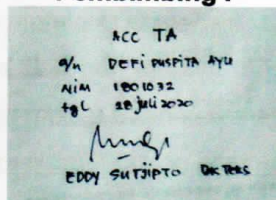 ACC TA
a/n DEFI PUSPITA AYU
NIM 1801032
tgl 28 juli 2020
EDDY SUTJIPTO